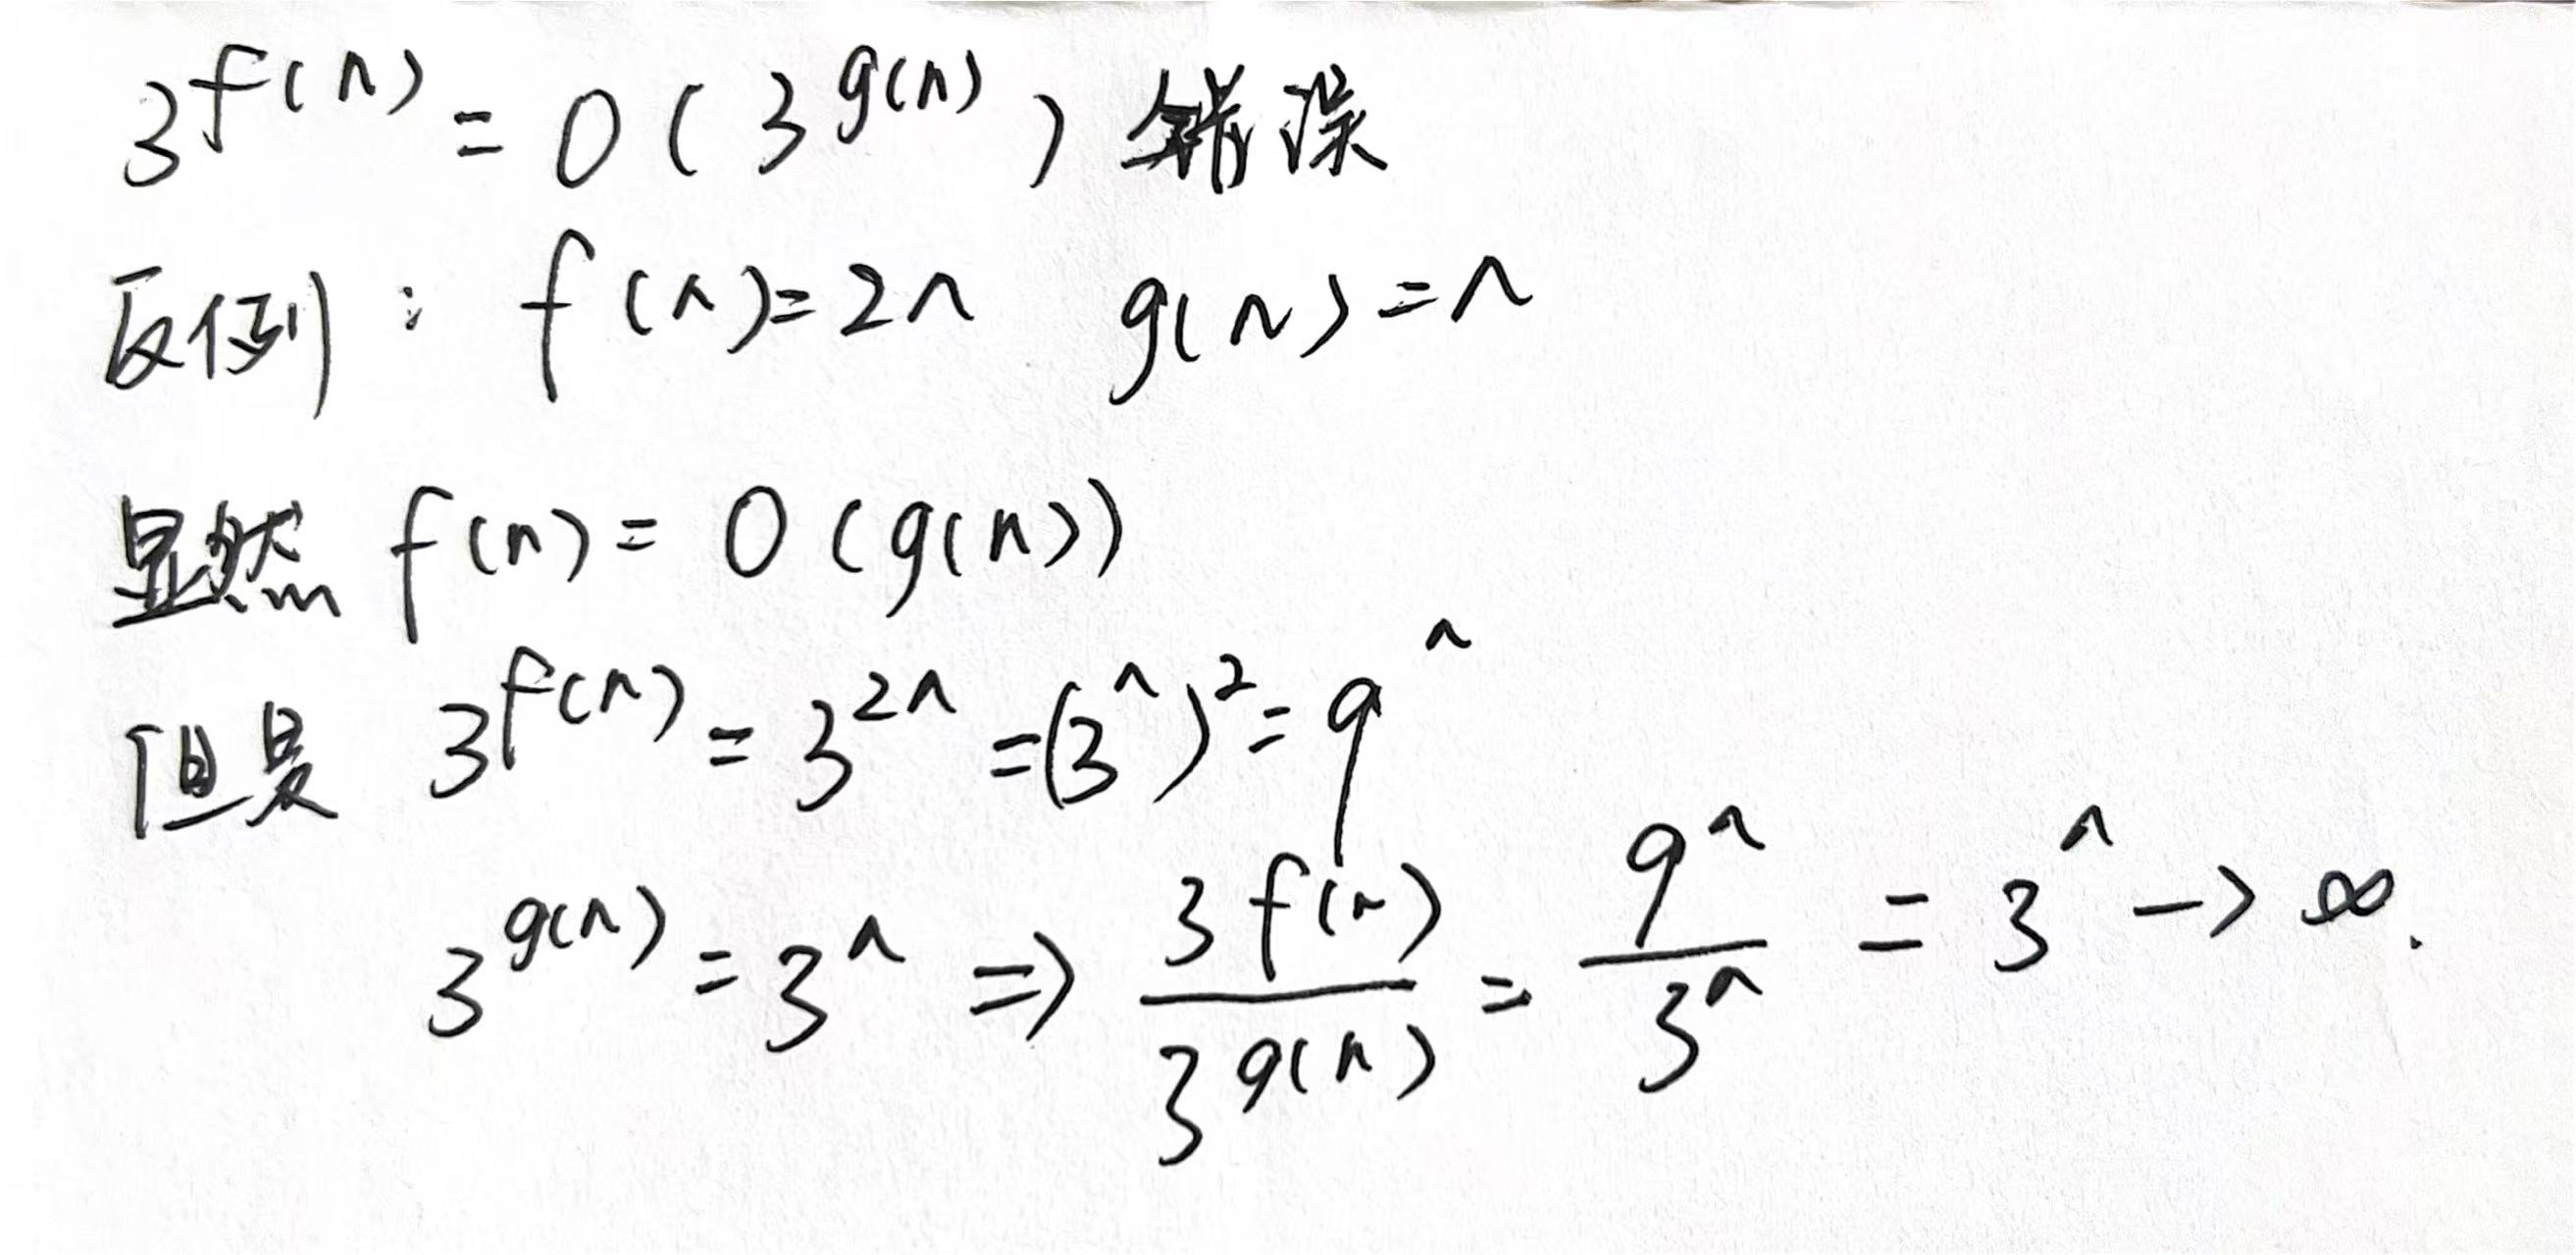 3^{f(n)} = O(3^{g(n)}) 错误
反例: f(n)=2n g(n)=n
显然 f(n)= O(g(n))
但是 3^{f(n)} = 3^{2n} = (3^n)^2 = 9^n
3^{g(n)} = 3^n => \frac{3^{f(n)}}{3^{g(n)}} = \frac{9^n}{3^n} = 3^n -> ∞.